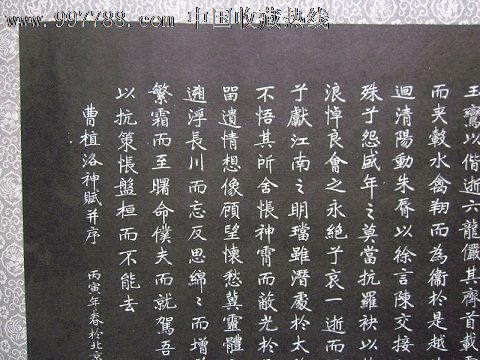 www.997788.com 中国收藏热线
玉鸞以偕逝六龍儼其齊首載
而夾轂水禽翔而為衛於是越
迴清陽動朱脣以徐言陳交接
殊兮怨盛年之莫當抗羅袂以
浪悼良會之永絕兮哀一逝而
兮獻江南之明璫雖潛處於太
不悟其所舍悵神霄而蔽光於
留遺情想像顧望懷愁冀靈體
遡浮長川而忘反思綿〻而增
繁霜而至曙命僕夫而就駕吾
以抗策悵盤桓而不能去
曹植洛神賦并序
丙寅年春於北京